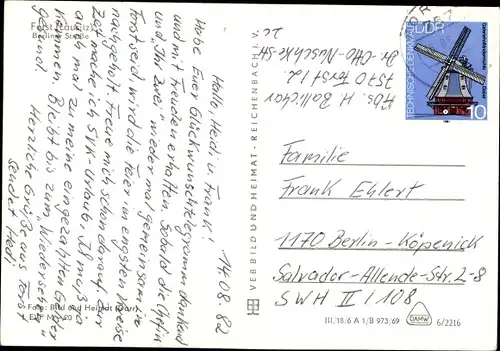 Forst (Lausitz)
Berliner Straße
14.08.82
Hallo, Heidi u. Frank!
Habe Euer Glückwunschtelegramm dankend
und mit Freuden erhalten. Sobald die Gefin
und "Ihr zwei" wieder mal gemeinsam in
Forst seid wird die Feier im engsten Kreise
nachgeholt. Freue mich schon darauf. Zur
Zeit mache ich SVK-Urlaub, Ja muß ja
auch mal zu meine eingezahlten Gelder
kommen. Bleibt bis zum "Wiedersehen"
gesund. Herzliche Grüße aus Forst
sendet Hedi
Foto: Bild und Heimat (Darr)
VEB BILD UND HEIMAT · REICHENBACH I. V.
Abs. H.
7570 Forst / L.
Dr.-Otto-Nuschke-Str.
2c
TECHNISCHE DENKMALE
DDR
10
1981
Familie
Frank Ehlert
1170 Berlin-Köpenick
Salvador-Allende-Str. 2-8
SWH II / 108
III/18/6 A 1/B 973/69
DAMW
6/2216